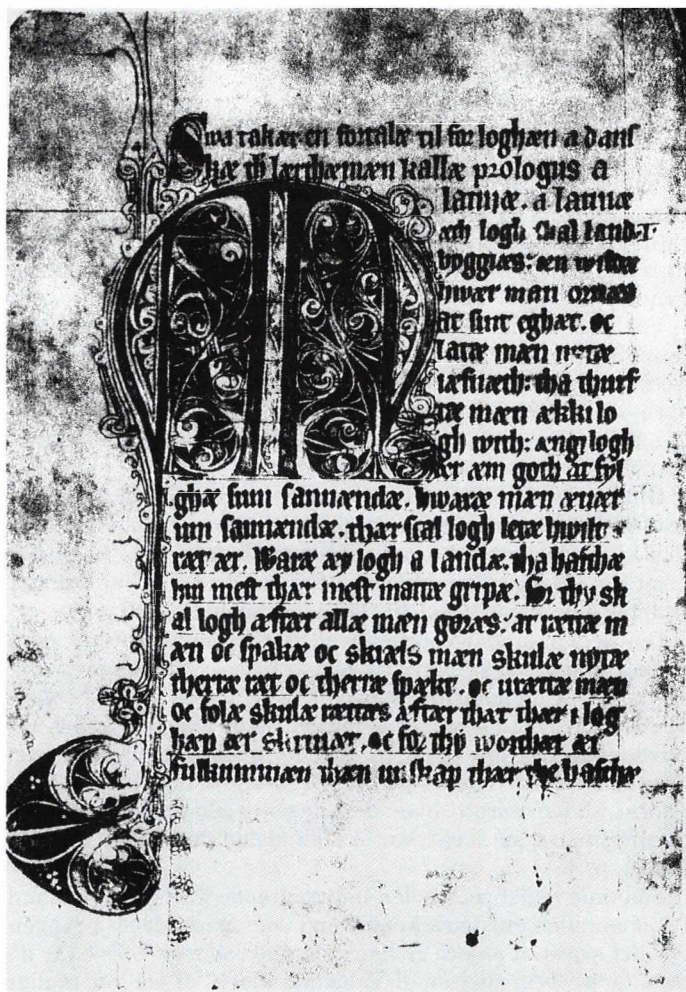 Swa takær en fortalæ til for loghæn a dans
kæ th lærthæmæn kallæ prologus a
latinæ. a latinæ
æth logh skal land
byggiæs: æn wildæ
hwær man
at sint eghæt. oc
latæ mæn nytæ
iæfnæth: tha thurf
tæ mæn ækki lo
gh with: ængi logh
ær æm goth at fyl
ghæ sum sannændæ. hwaræ mæn æuær
um sannændæ. thær scal logh letæ hwilt
ræt ær. Waræ ey logh a landæ. tha hafthæ
hin mest thær mest mattæ gripæ. for thy sk
al logh æftær allæ mæn gøræs: at rættæ m
æn oc spakæ oc skiæls mæn skulæ nytæ
therræ ræt oc therræ spækt. oc urættæ mæn
oc folæ skulæ rættæs æftær thæt thær i logh
hæn ær skriuæt. oc for thy worthær ær
fulkummæn thæn unskap thær the hafthæ